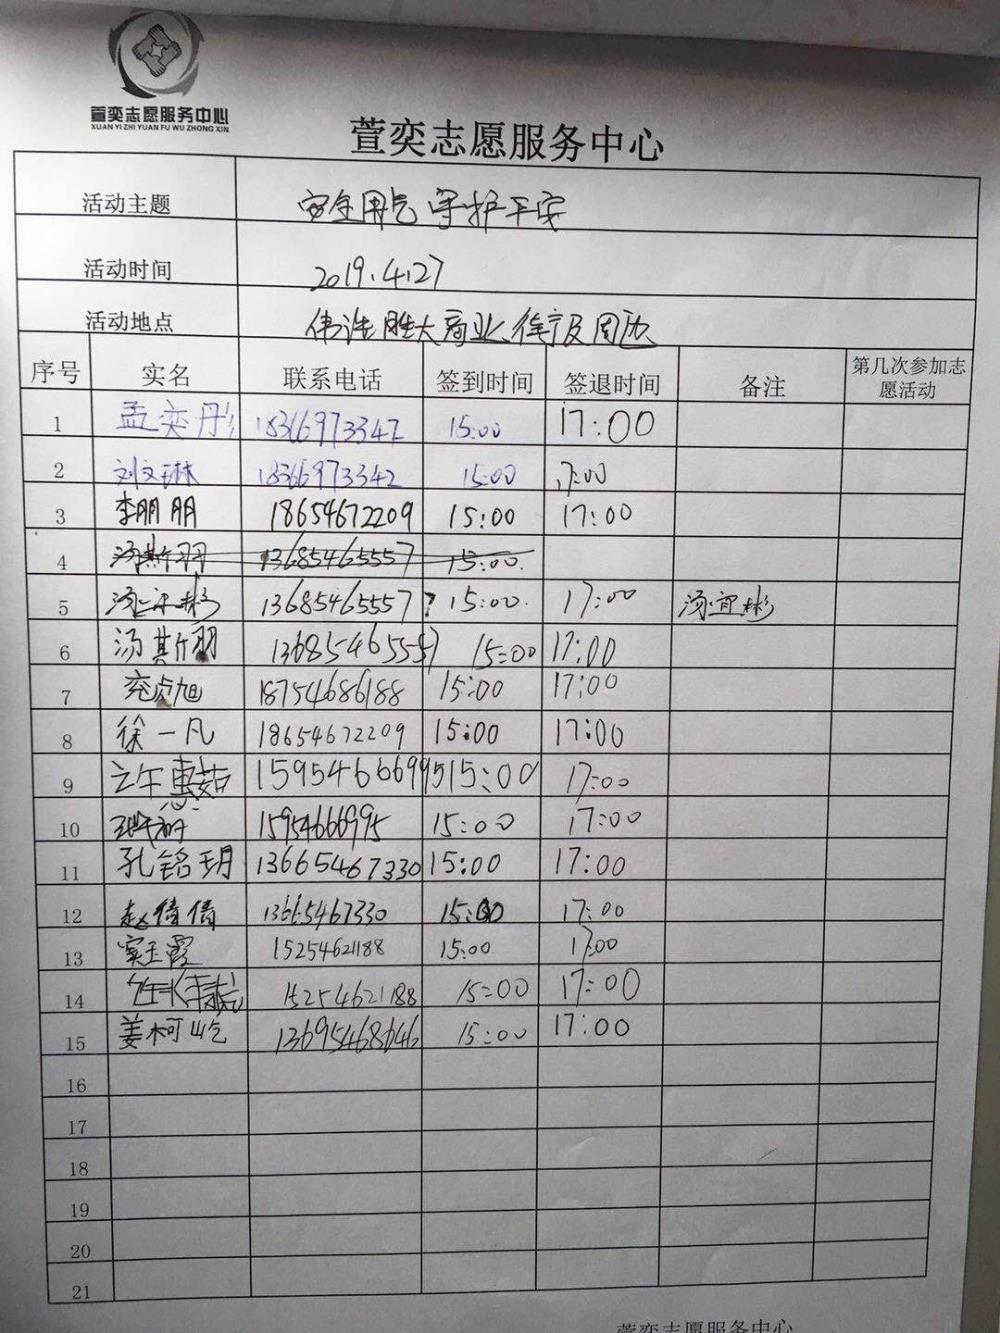 萱奕志愿服务中心
XUAN YI ZHI YUAN FU WU ZHONG XIN
萱奕志愿服务中心
活动主题 安全用气 守护平安
活动时间 2019.4.27
活动地点 胜大商业 及周边
序号 实名 联系电话 签到时间 签退时间 备注 第几次参加志愿活动
1 孟奕彤 18366973342 15:00 17:00
2 刘文琳 18366973342 15:00 17:00
3 李朋朋 18654672209 15:00 17:00
4 汤斯羽 13685465557 15:00
5 13685465557 15:00 17:00 汤宜彬
6 汤斯羽 13685465557 15:00 17:00
7 充贞旭 18754686188 15:00 17:00
8 徐一凡 18654672209 15:00 17:00
9 15954666995 15:00 17:00
10 15954666995 15:00 17:00
11 孔铭玥 13665467330 15:00 17:00
12 赵倩倩 13665467330 15:00 17:00
13 窦玉霞 15254621188 15:00 17:00
14 15254621188 15:00 17:00
15 姜柯屹 13695468646 15:00 17:00
16
17
18
19
20
21
萱奕志愿服务中心